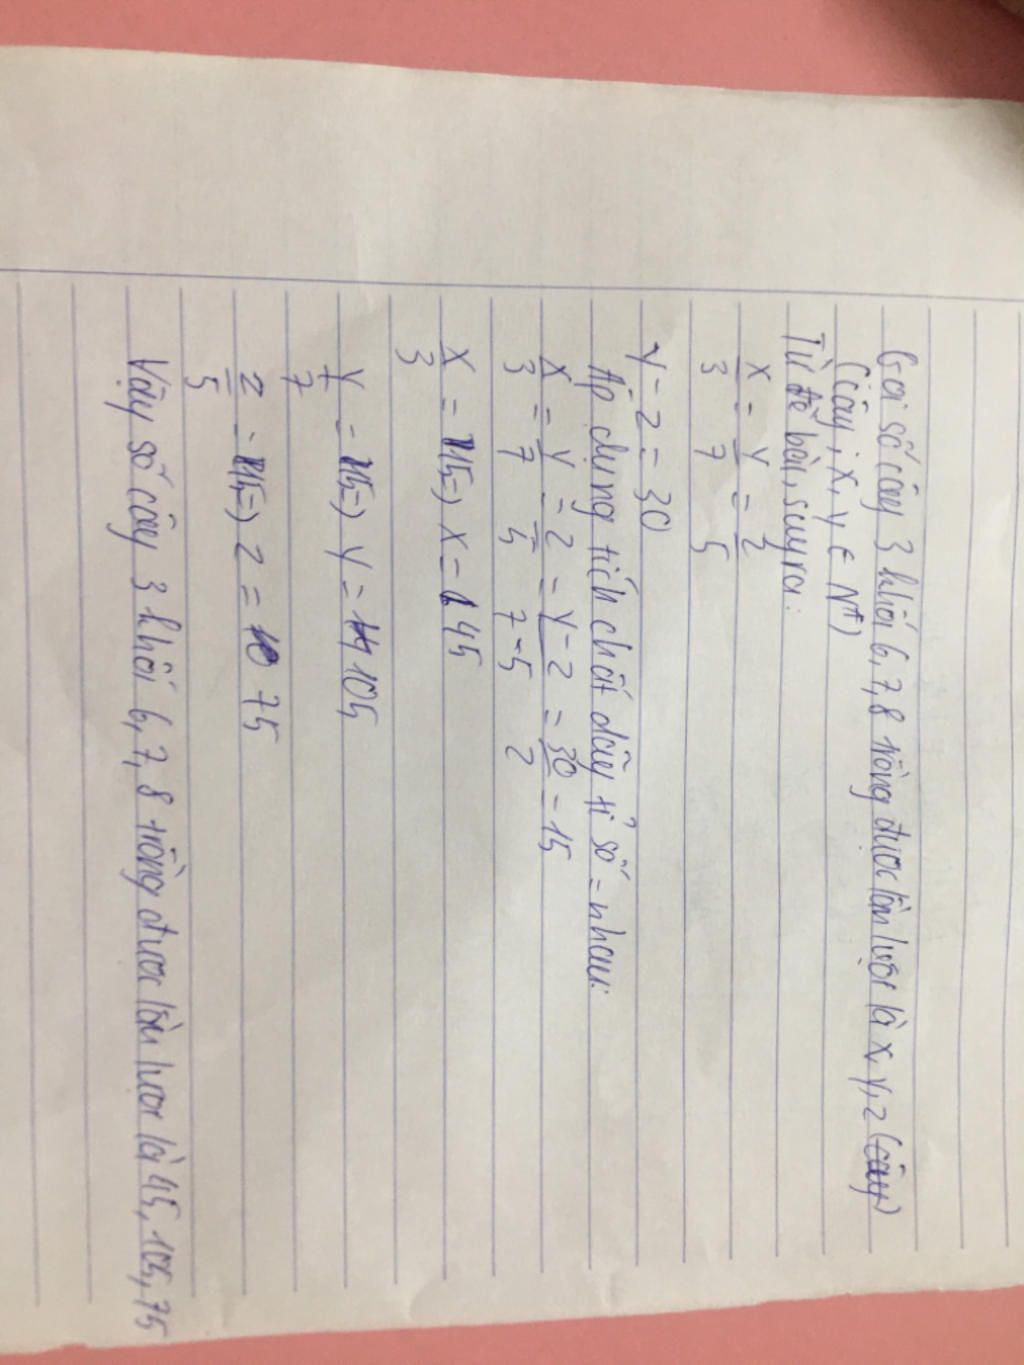 Gọi số cây 3 khối 6, 7, 8 trồng được lần lượt là x, y, z (cây)
(cây; x, y ∈ N*)
Từ đề bài, suy ra:
x/3 = y/7 = z/5
y - z = 30
Áp dụng tích chất dãy tỉ số = nhau:
x/3 = y/7 = z/5 = y-z/7-5 = 30/2 = 15
x/3 = 15 => x = 45
y/7 = 15 => y = 105
z/5 = 15 => z = 75
Vậy số cây 3 khối 6, 7, 8 trồng được lần lượt là 45, 105, 75